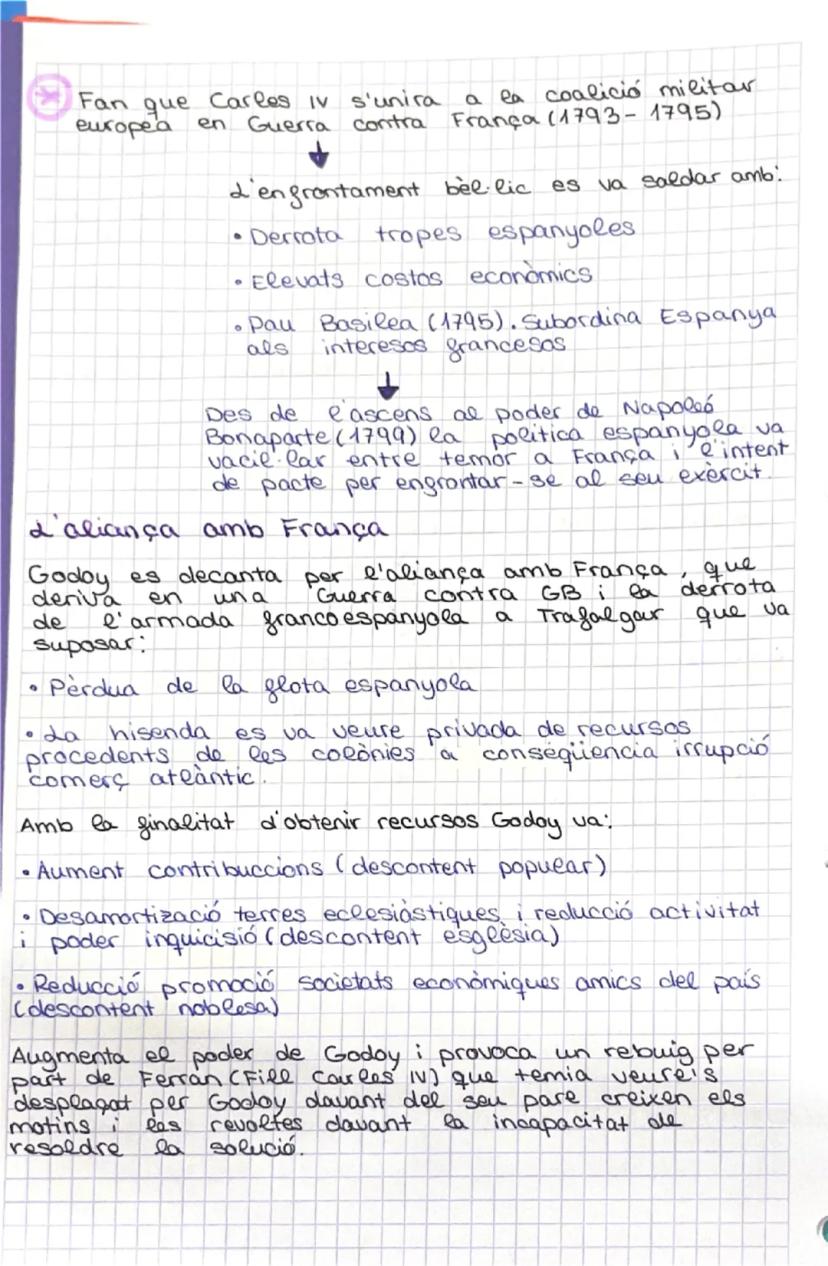 Fan que Carles IV s'unira a la coalició militar
europea en Guerra contra França (1793 - 1795)
L'enfrontament bèl·lic es va saldar amb:
• Derrota tropes espanyoles
• Elevats costos econòmics
• Pau Basilea (1795). Subordina Espanya
als interesos francesos
Des de l'ascens al poder de Napoleó
Bonaparte (1799) la política espanyola va
vacil·lar entre temor a França i l'intent
de pacte per enfrontar-se al seu exèrcit.
L'aliança amb França
Godoy es decanta per l'aliança amb França, que
deriva en una Guerra contra GB i la derrota
de l'armada francoespanyola a Trafalgar que va
suposar:
• Pèrdua de la flota espanyola
• La hisenda es va veure privada de recursos
procedents de les colònies a conseqüencia irrupció
comerç atlàntic.
Amb la finalitat d'obtenir recursos Godoy va:
• Aument contribuccions (descontent popular)
• Desamortizació terres eclesiàstiques i reducció activitat
i poder inquicisió (descontent església)
• Reducció promoció societats econòmiques amics del país
(descontent noblesa)
Augmenta el poder de Godoy i provoca un rebuig per
part de Ferran (Fill Carles IV) que temia veure's
desplaçat per Godoy davant del seu pare creixen els
motins i les revoltes davant la incapacitat de
resoldre la solució.